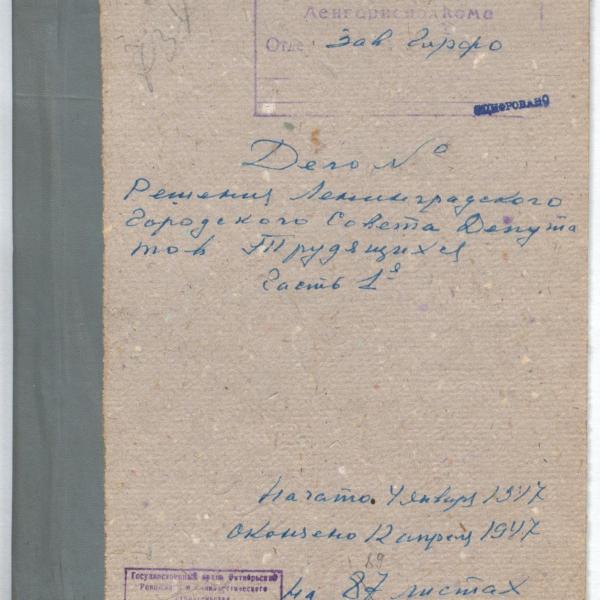 Ленгорисполкома
Отде Зав. Горфо
ОЦИФРОВАНО
Дело №
Решения Ленинградского
Городского Совета Депута
тов Трудящихся
Часть 1я
Начато. 4 января 1947
Окончено 12 апреля 1947
89
На 87 листах
Государственный архив Октябрьской
Революции и социалистического
строительства